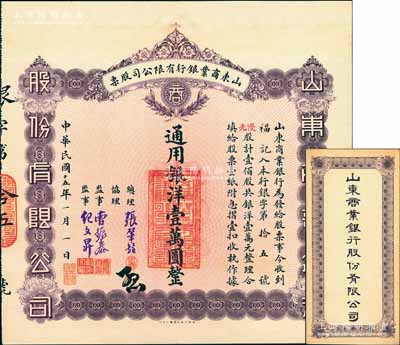 山東商業銀行有限公司股票
商
山東
股份有限公司
山東商業銀行為發給股票事今收到
福記入本行銀字第拾五號
優先股計壹佰股共銀洋壹萬元整理合
填給股票壹紙附息摺壹扣收執作據
通用銀洋壹萬圓整
總理
協理
監事
監事 紀文昇
中華民國十五年一月一日
山東商業銀行股份有限公司